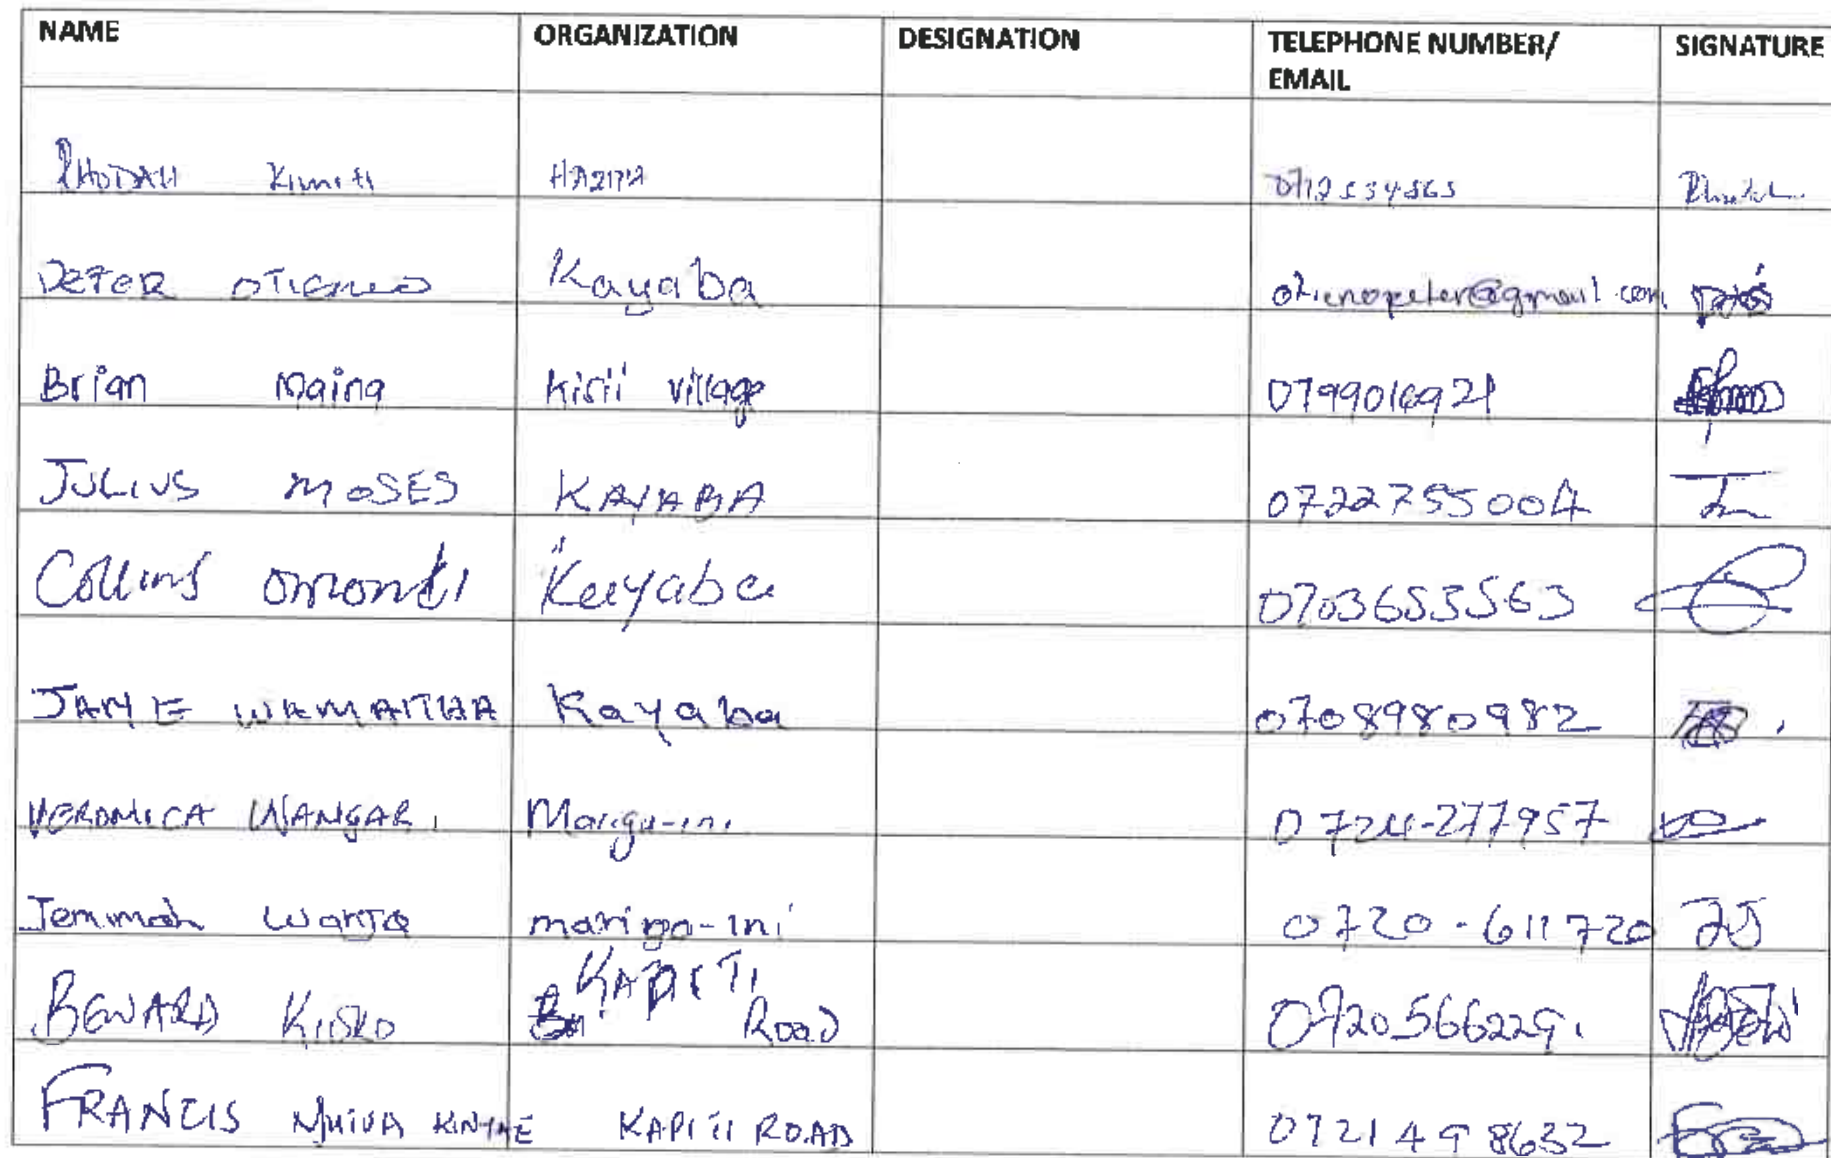 NAME ORGANIZATION DESIGNATION TELEPHONE NUMBER/ SIGNATURE
EMAIL
RHODAH Kimiti HAZINA
PETER OTIENO Kayaba otienopeter@gmail.com
Brian Maina Kisii village 0799016921
JULIUS MOSES KAYABA 0722755004
Collins Omondi Kayaba 0703653563
JANE WAMAITHA Kayaba 0708980982
VERONICA WANGARI Marigu-ini 0724-277957
Jemimah Wanja marigo-ini 0720-611720 JJ
KAPITI
BENARD Road 0720566229.
FRANCIS KAPITI ROAD 0721498632